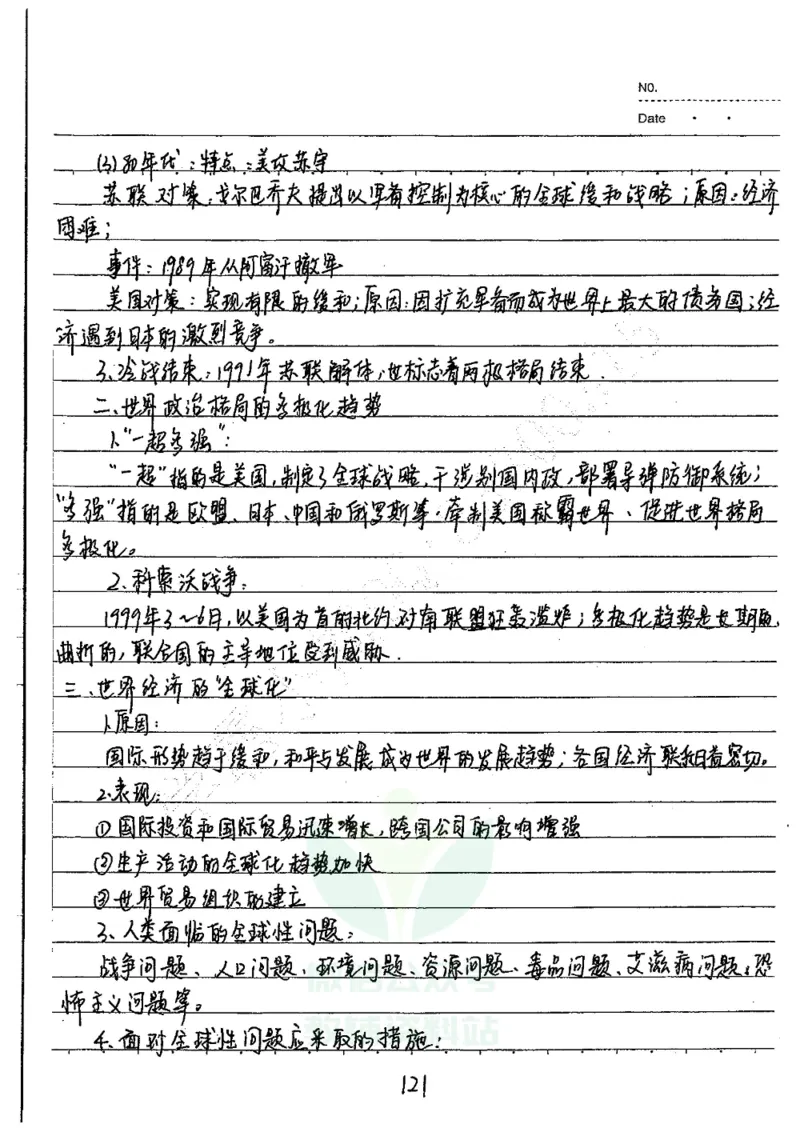 NO.
Date
(3) 80年代：特点：美攻苏守
苏联对策：戈尔巴乔夫提出以军备控制为核心的全球缓和战略；原因：经济
困难；
事件：1989年从阿富汗撤军
美国对策：实现有限的缓和；原因：因扩充军备而成为世界上最大的债务国；经
济遇到日本的激烈竞争。
3、冷战结束：1991年苏联解体，也标志着两极格局结束．
二、世界政治格局的多极化趋势
1、“一超多强”：
“一超”指的是美国，制定了全球战略，干涉别国内政，部署导弹防御系统；
“多强”指的是欧盟、日本、中国和俄罗斯等，牵制美国称霸世界、促进世界格局
多极化。
2、科索沃战争：
1999年3~6日，以美国为首的北约对南联盟狂轰滥炸；多极化趋势是长期的，
曲折的，联合国的主导地位受到威胁．
三、世界经济的“全球化”
1、原因：
国际形势趋于缓和，和平与发展成为世界的发展趋势；各国经济联系日益密切。
2、表现：
①国际投资和国际贸易迅速增长，跨国公司的影响增强
②生产活动的全球化趋势加快
③世界贸易组织的建立
3、人类面临的全球性问题：
战争问题、人口问题、环境问题、资源问题、毒品问题、艾滋病问题、恐
怖主义问题等。
4、面对全球性问题应采取的措施：
微信公众号
教辅资料站
121